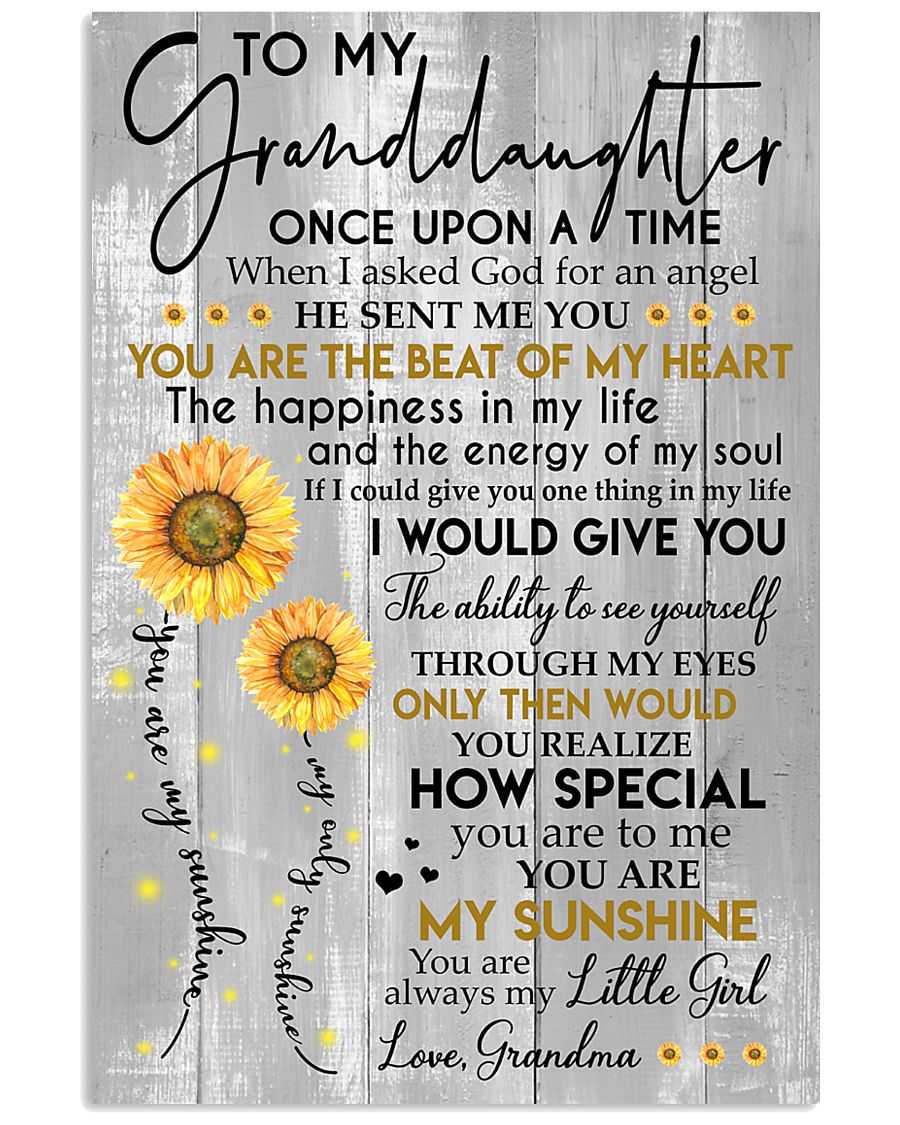 TO MY
Granddaughter
ONCE UPON A TIME
When I asked God for an angel
HE SENT ME YOU
YOU ARE THE BEAT OF MY HEART
The happiness in my life
and the energy of my soul
If I could give you one thing in my life
I WOULD GIVE YOU
The ability to see yourself
THROUGH MY EYES
ONLY THEN WOULD
YOU REALIZE
HOW SPECIAL
you are to me
YOU ARE
MY SUNSHINE
You are
always my Little Girl
Love, Grandma
you are my sunshine
my only sunshine